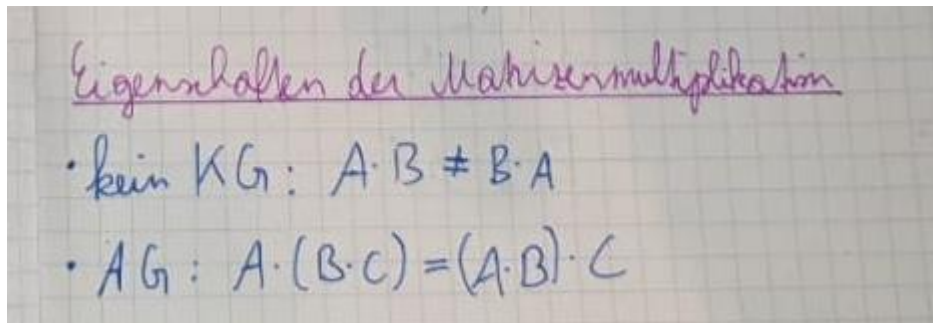 Eigenschaften der Matrizenmultiplikation
· kein KG: A·B ≠ B·A
· AG: A·(B·C) = (A·B)·C